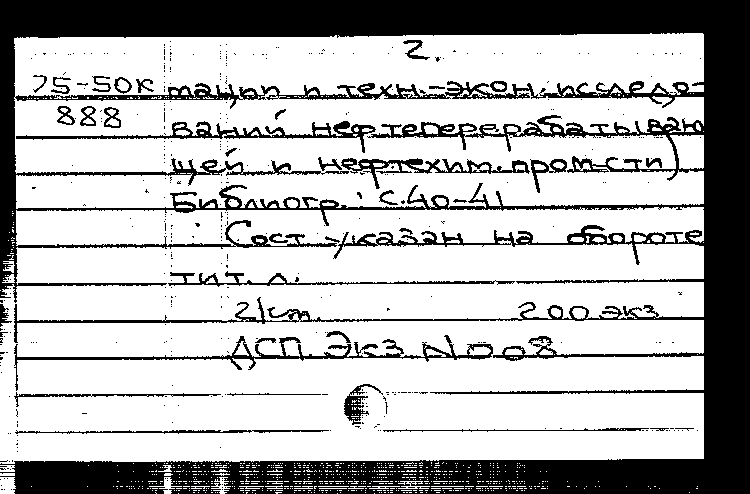 2.
75-50к тации и техн.-экон. исследо-
888 ваний нефтеперерабатываю
щей и нефтехим. пром-сти)
Библиогр.: с.40-41
Сост указан на обороте
тит. л.
21 см. 200 экз
ДСП. Экз N 008